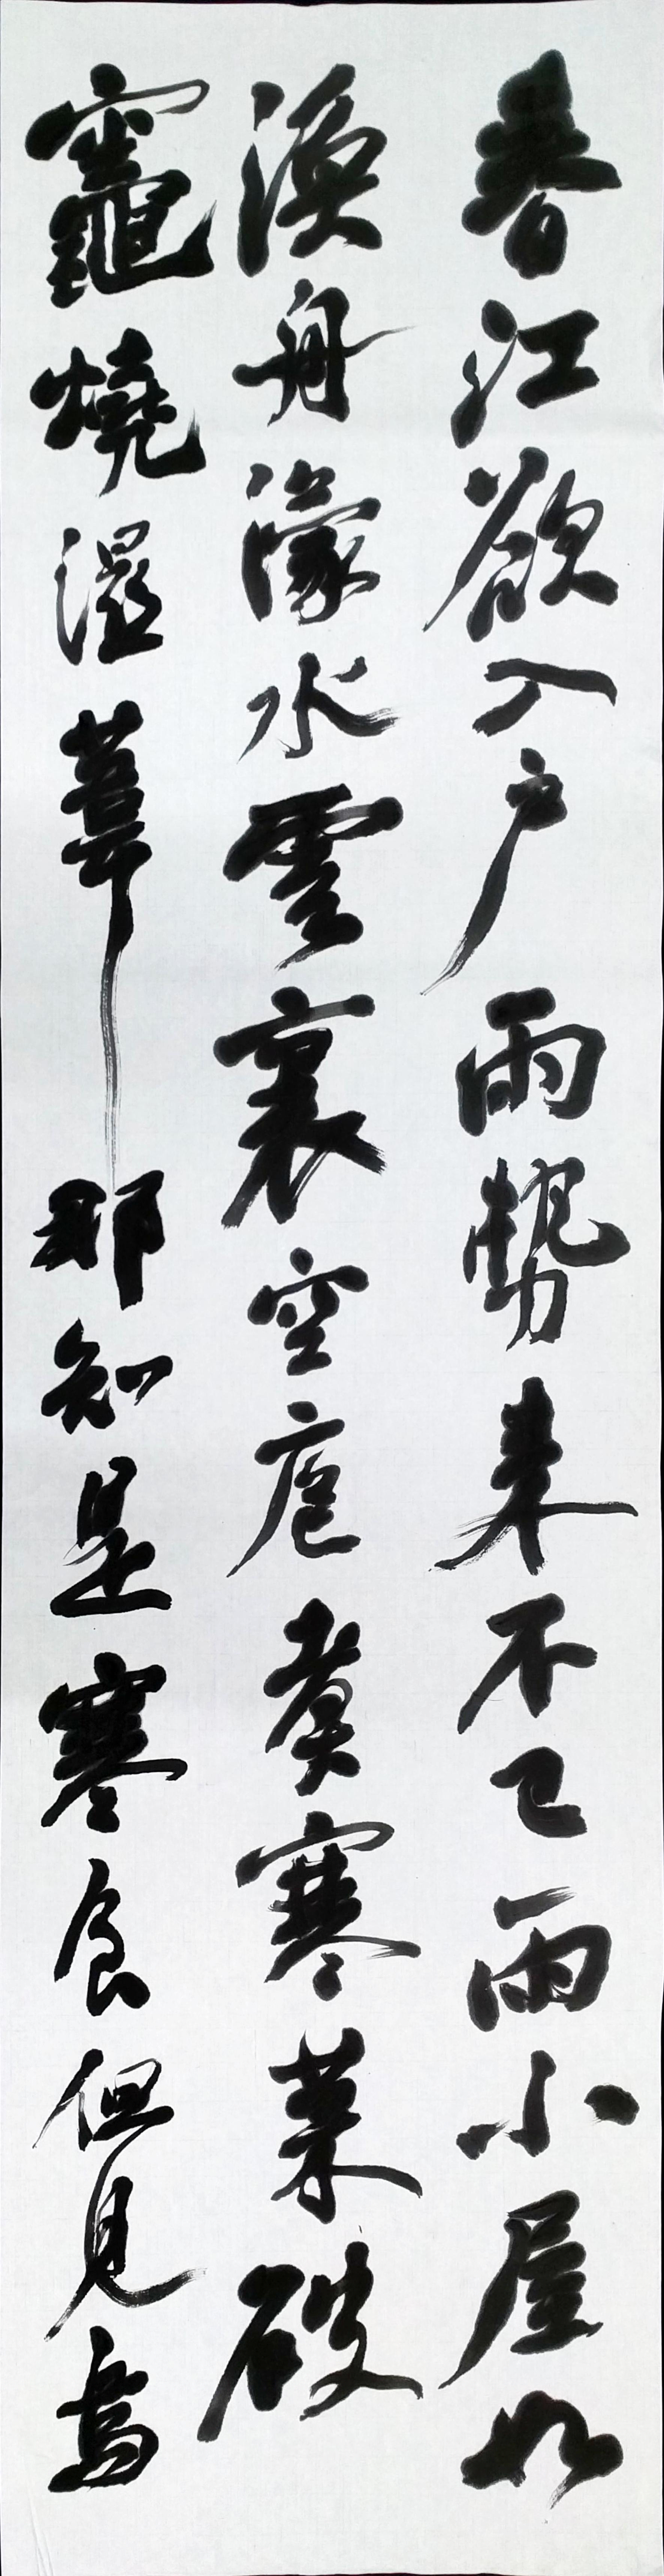 春江欲入戶雨勢来不已雨小屋如
漁舟濛水雲裏空庖煑寒菜破
竈燒濕葦那知是寒食但見烏